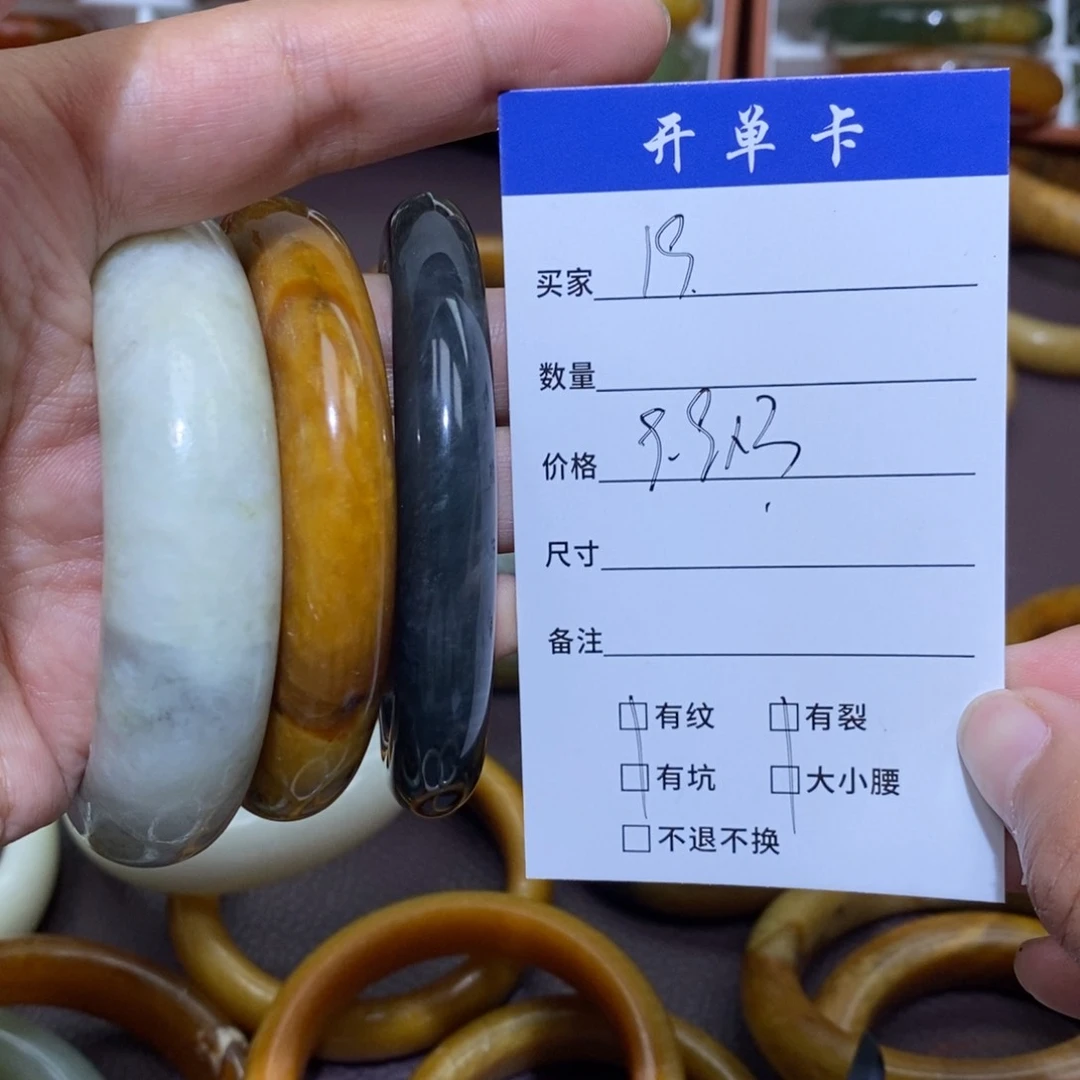 开单卡
买家 19.
数量
价格 9.9x3
尺寸
备注
□有纹 □有裂
□有坑 □大小腰
□不退不换